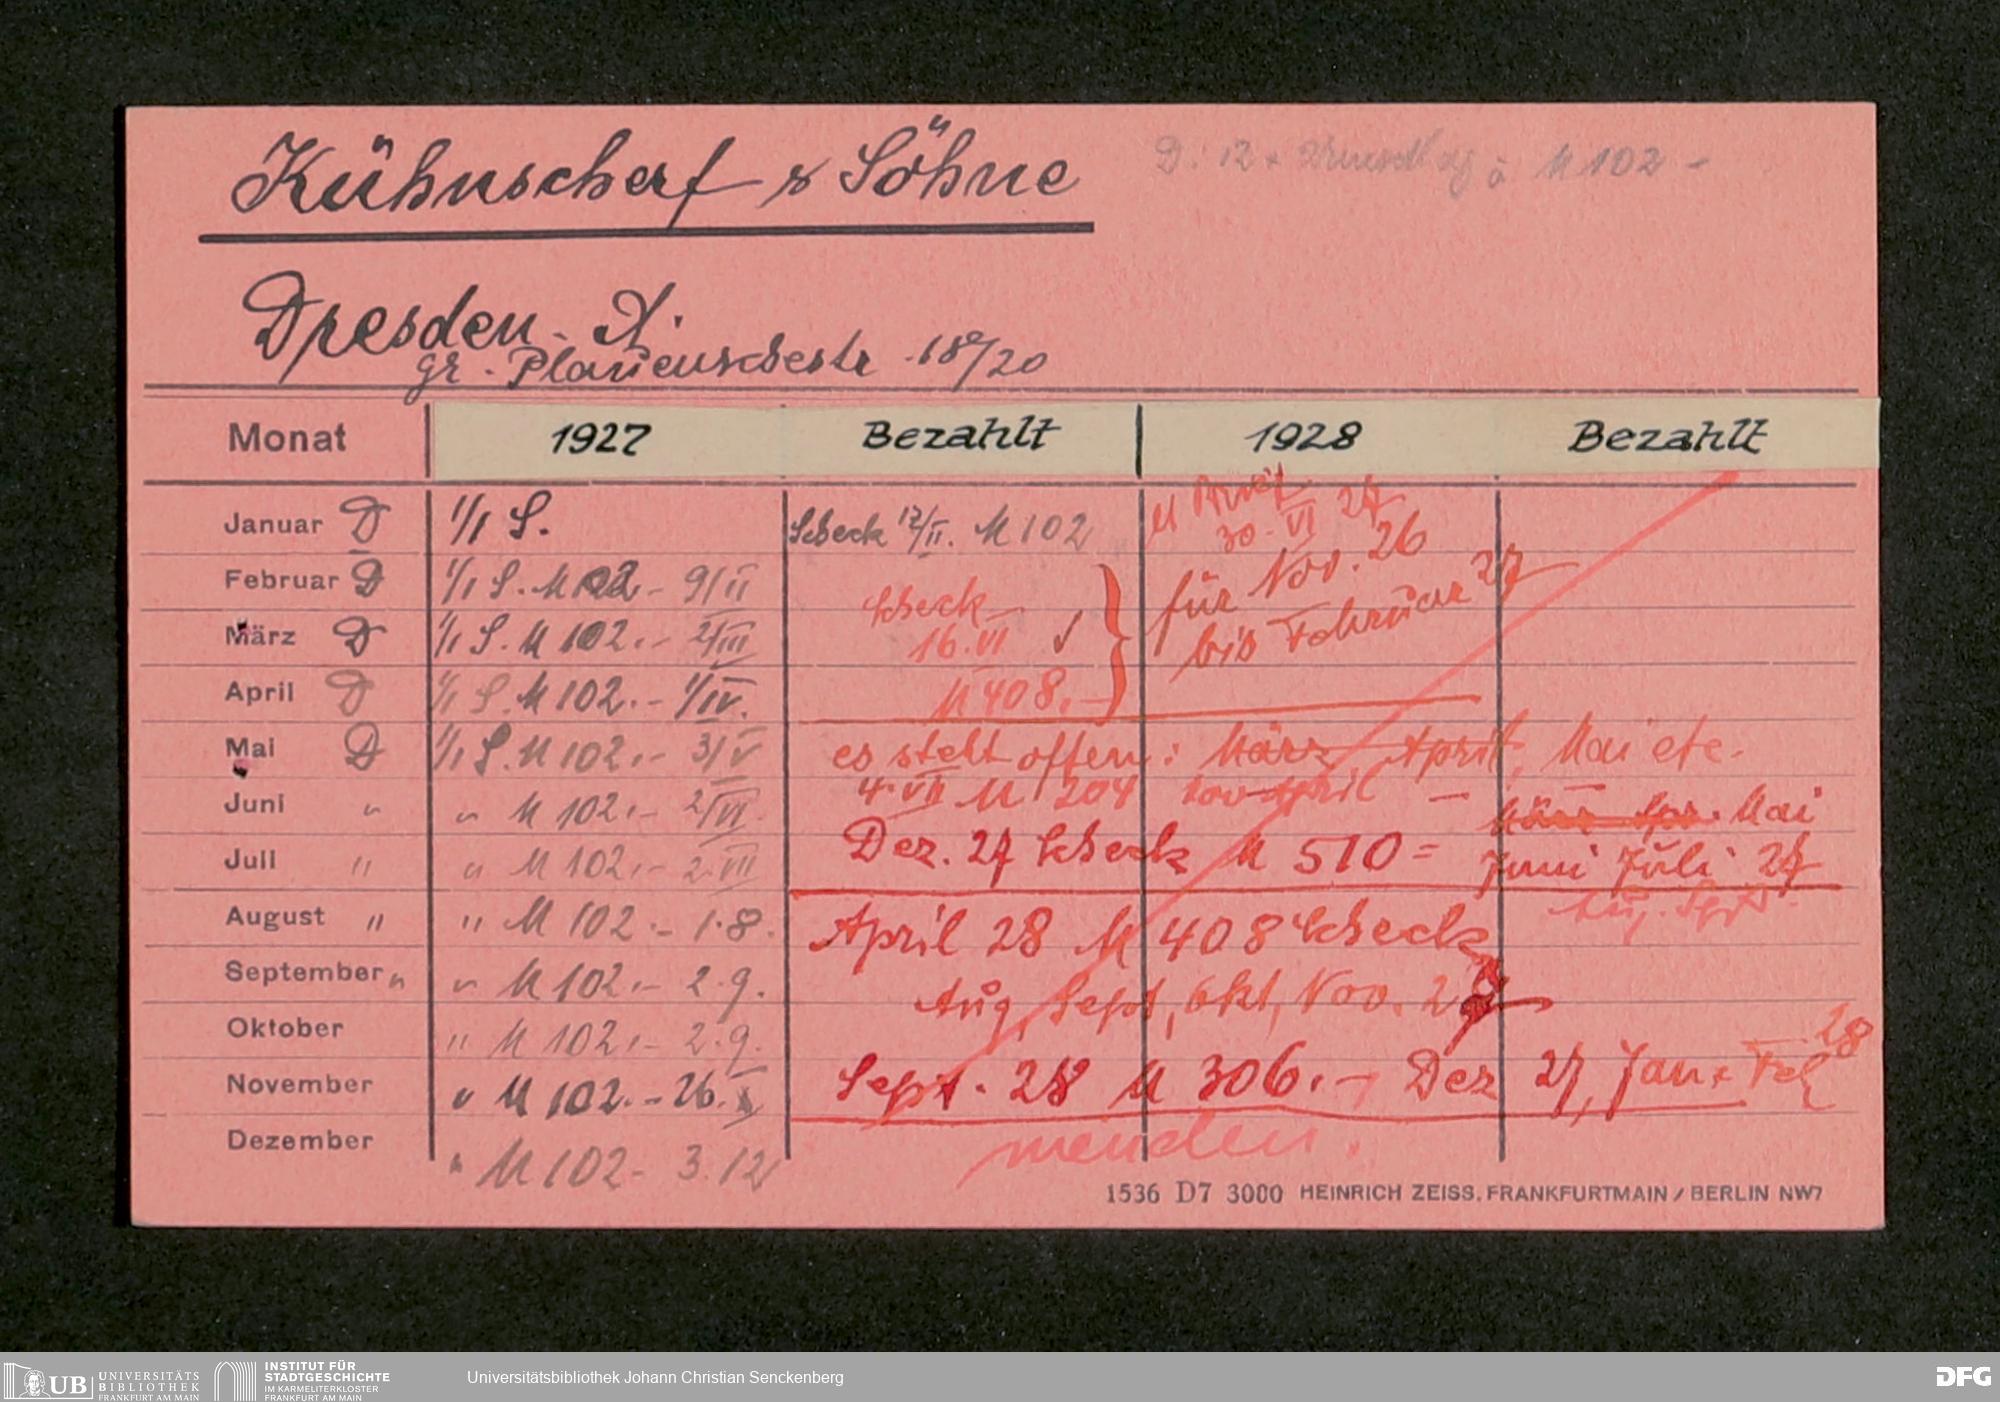 Kühnscherf & Söhne
D. 12 x à M 102 -
Dresden. A.
gr. Plauenschestr 18/20
Monat 1927 Bezahlt 1928 Bezahlt
Januar D 1/1 S. Scheck 12/II. M 102
30. VI 27
Februar D 1/1 S. M 102 - 9/II
für Nov. 26
Scheck
bis Februar 27
März D 1/1 S. M 102.- 2/III
16. VI ✓
April D 1/1 S. M 102.- 1/IV.
M 408.-
Mai D 1/1 S. M 102.- 3/V
es steht offen: März April, Mai etc.
Juni " " M 102.- 2/VI.
4. VII M 204 April - März Apr. Mai
Juli " " M 102.- 2.VII
Dez. 27 Scheck M 510 = Juni Juli 27
Aug. Sept.
August " " M 102.- 1.8.
April 28 M 408 Scheck
September " " M 102.- 2.9.
Aug, Sept, Okt, Nov. 27
Oktober " M 102.- 2.9.
28
November " M 102.- 26.X
Sept. 28 M 306.- Dez 27, Jan + Feb
Dezember " M 102- 3.12
1536 D7 3000 HEINRICH ZEISS, FRANKFURTMAIN / BERLIN NW7
UB UNIVERSITÄTS
BIBLIOTHEK
FRANKFURT AM MAIN
INSTITUT FÜR
STADTGESCHICHTE
IM KARMELITERKLOSTER
FRANKFURT AM MAIN
Universitätsbibliothek Johann Christian Senckenberg
DFG